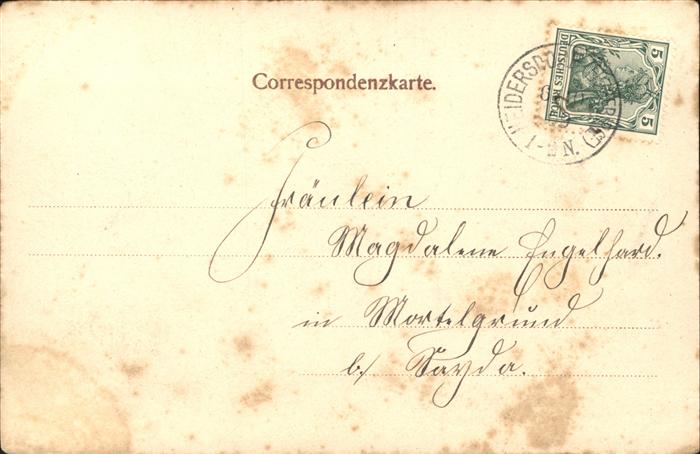 Correspondenzkarte.
5 DEUTSCHES REICH 5
1-2 N.
Fräulein
Magdalene Engelhard.
in Mortelgrund
b/ Sayda.